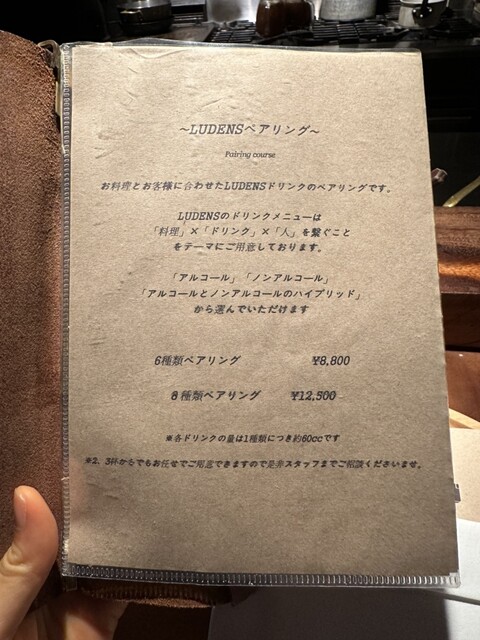 ～LUDENSペアリング～
Pairing course
お料理とお客様に合わせたLUDENSドリンクのペアリングです。
LUDENSのドリンクメニューは
「料理」×「ドリンク」×「人」を繋ぐこと
をテーマにご用意しております。
「アルコール」「ノンアルコール」
「アルコールとノンアルコールのハイブリッド」
から選んでいただけます
6種類ペアリング ¥8,800
8種類ペアリング ¥12,500
※各ドリンクの量は1種類につき約60ccです
※2、3杯からでもお任せでご用意できますので是非スタッフまでご相談くださいませ。